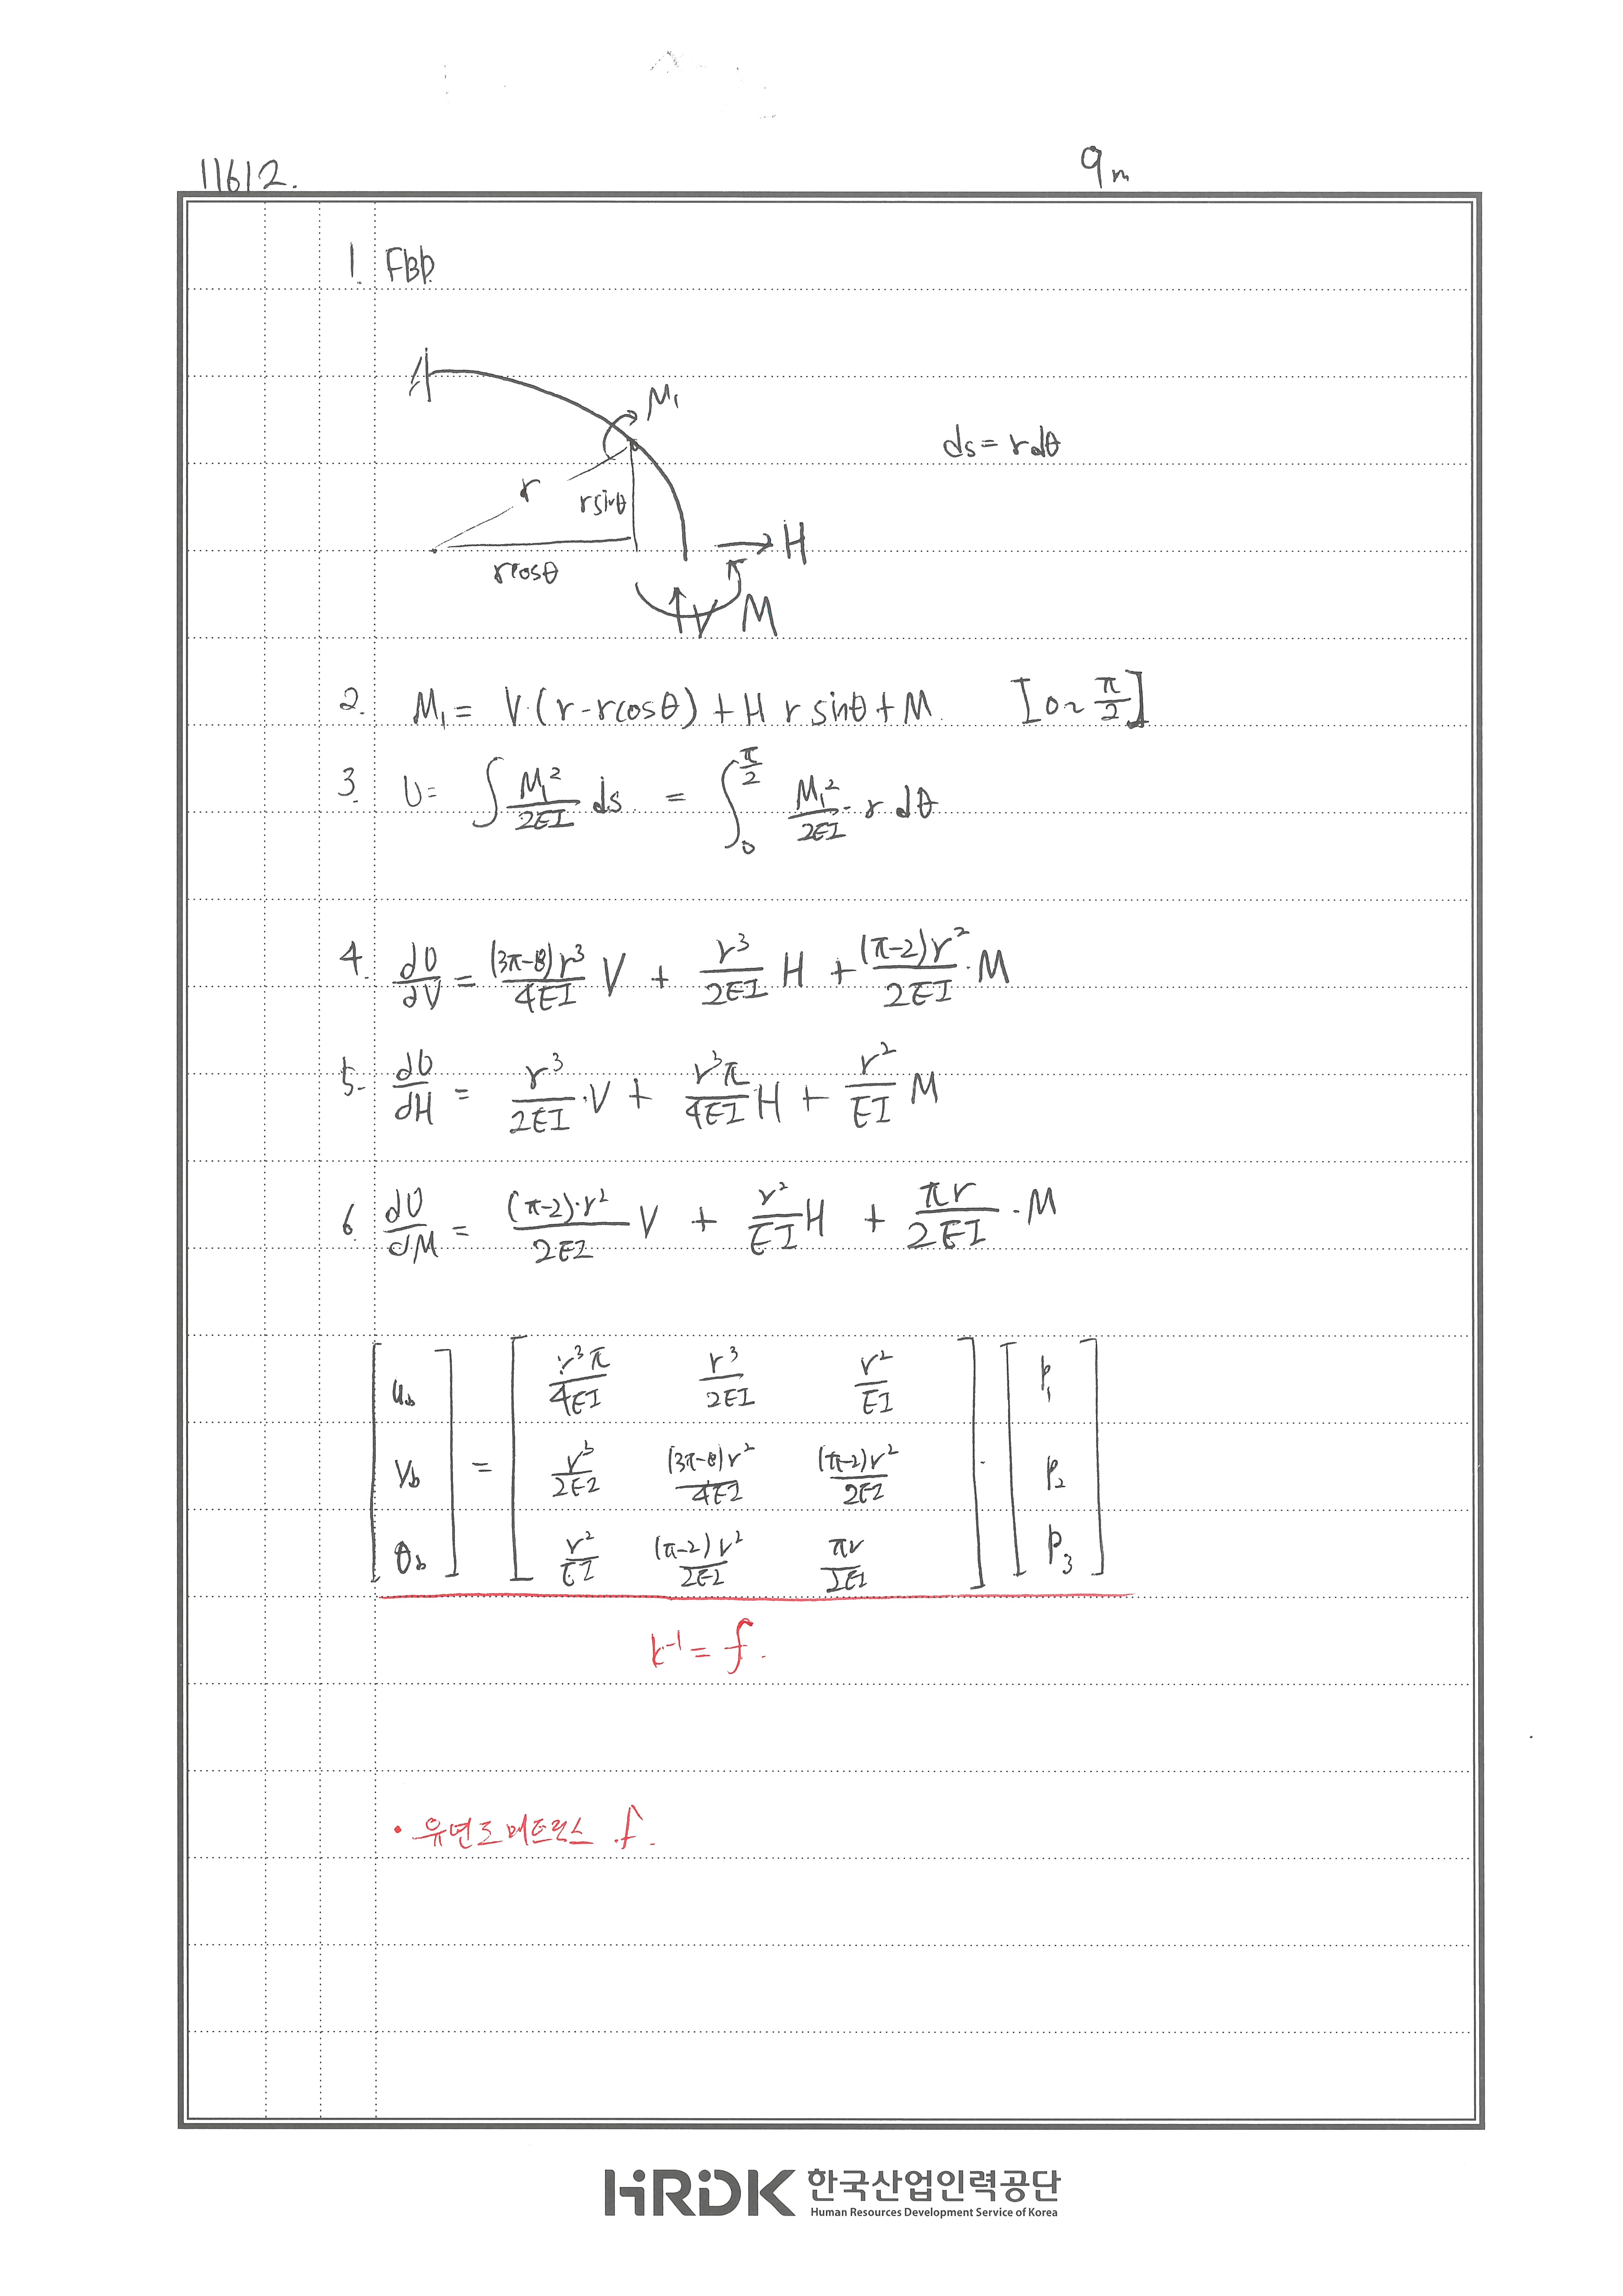 11612.
9m
1. FBD
M₁
ds = rdθ
r
rsinθ
H
rcosθ
V M
2. M₁ = V·(r-rcosθ) + H r sinθ + M [0~π/2]
3. U = ∫ M₁²/2EI ds = ∫₀^(π/2) M₁²/2EI · r dθ
4. dU/dV = (3π-8)r³/4EI V + r³/2EI H + (π-2)r²/2EI · M
5. dU/dH = r³/2EI · V + r³π/4EI H + r²/EI M
6. dU/dM = (π-2)·r²/2EI V + r²/EI H + πr/2EI · M
[u_b] = [r³π/4EI r³/2EI r²/EI] · [P₁]
[V_b] = [r³/2EI (3π-8)r²/4EI (π-2)r²/2EI] · [P₂]
[θ_b] = [r²/EI (π-2)r²/2EI πr/2EI] · [P₃]
k⁻¹ = f.
• 유연도 매트릭스 f.
HRDK 한국산업인력공단
Human Resources Development Service of Korea